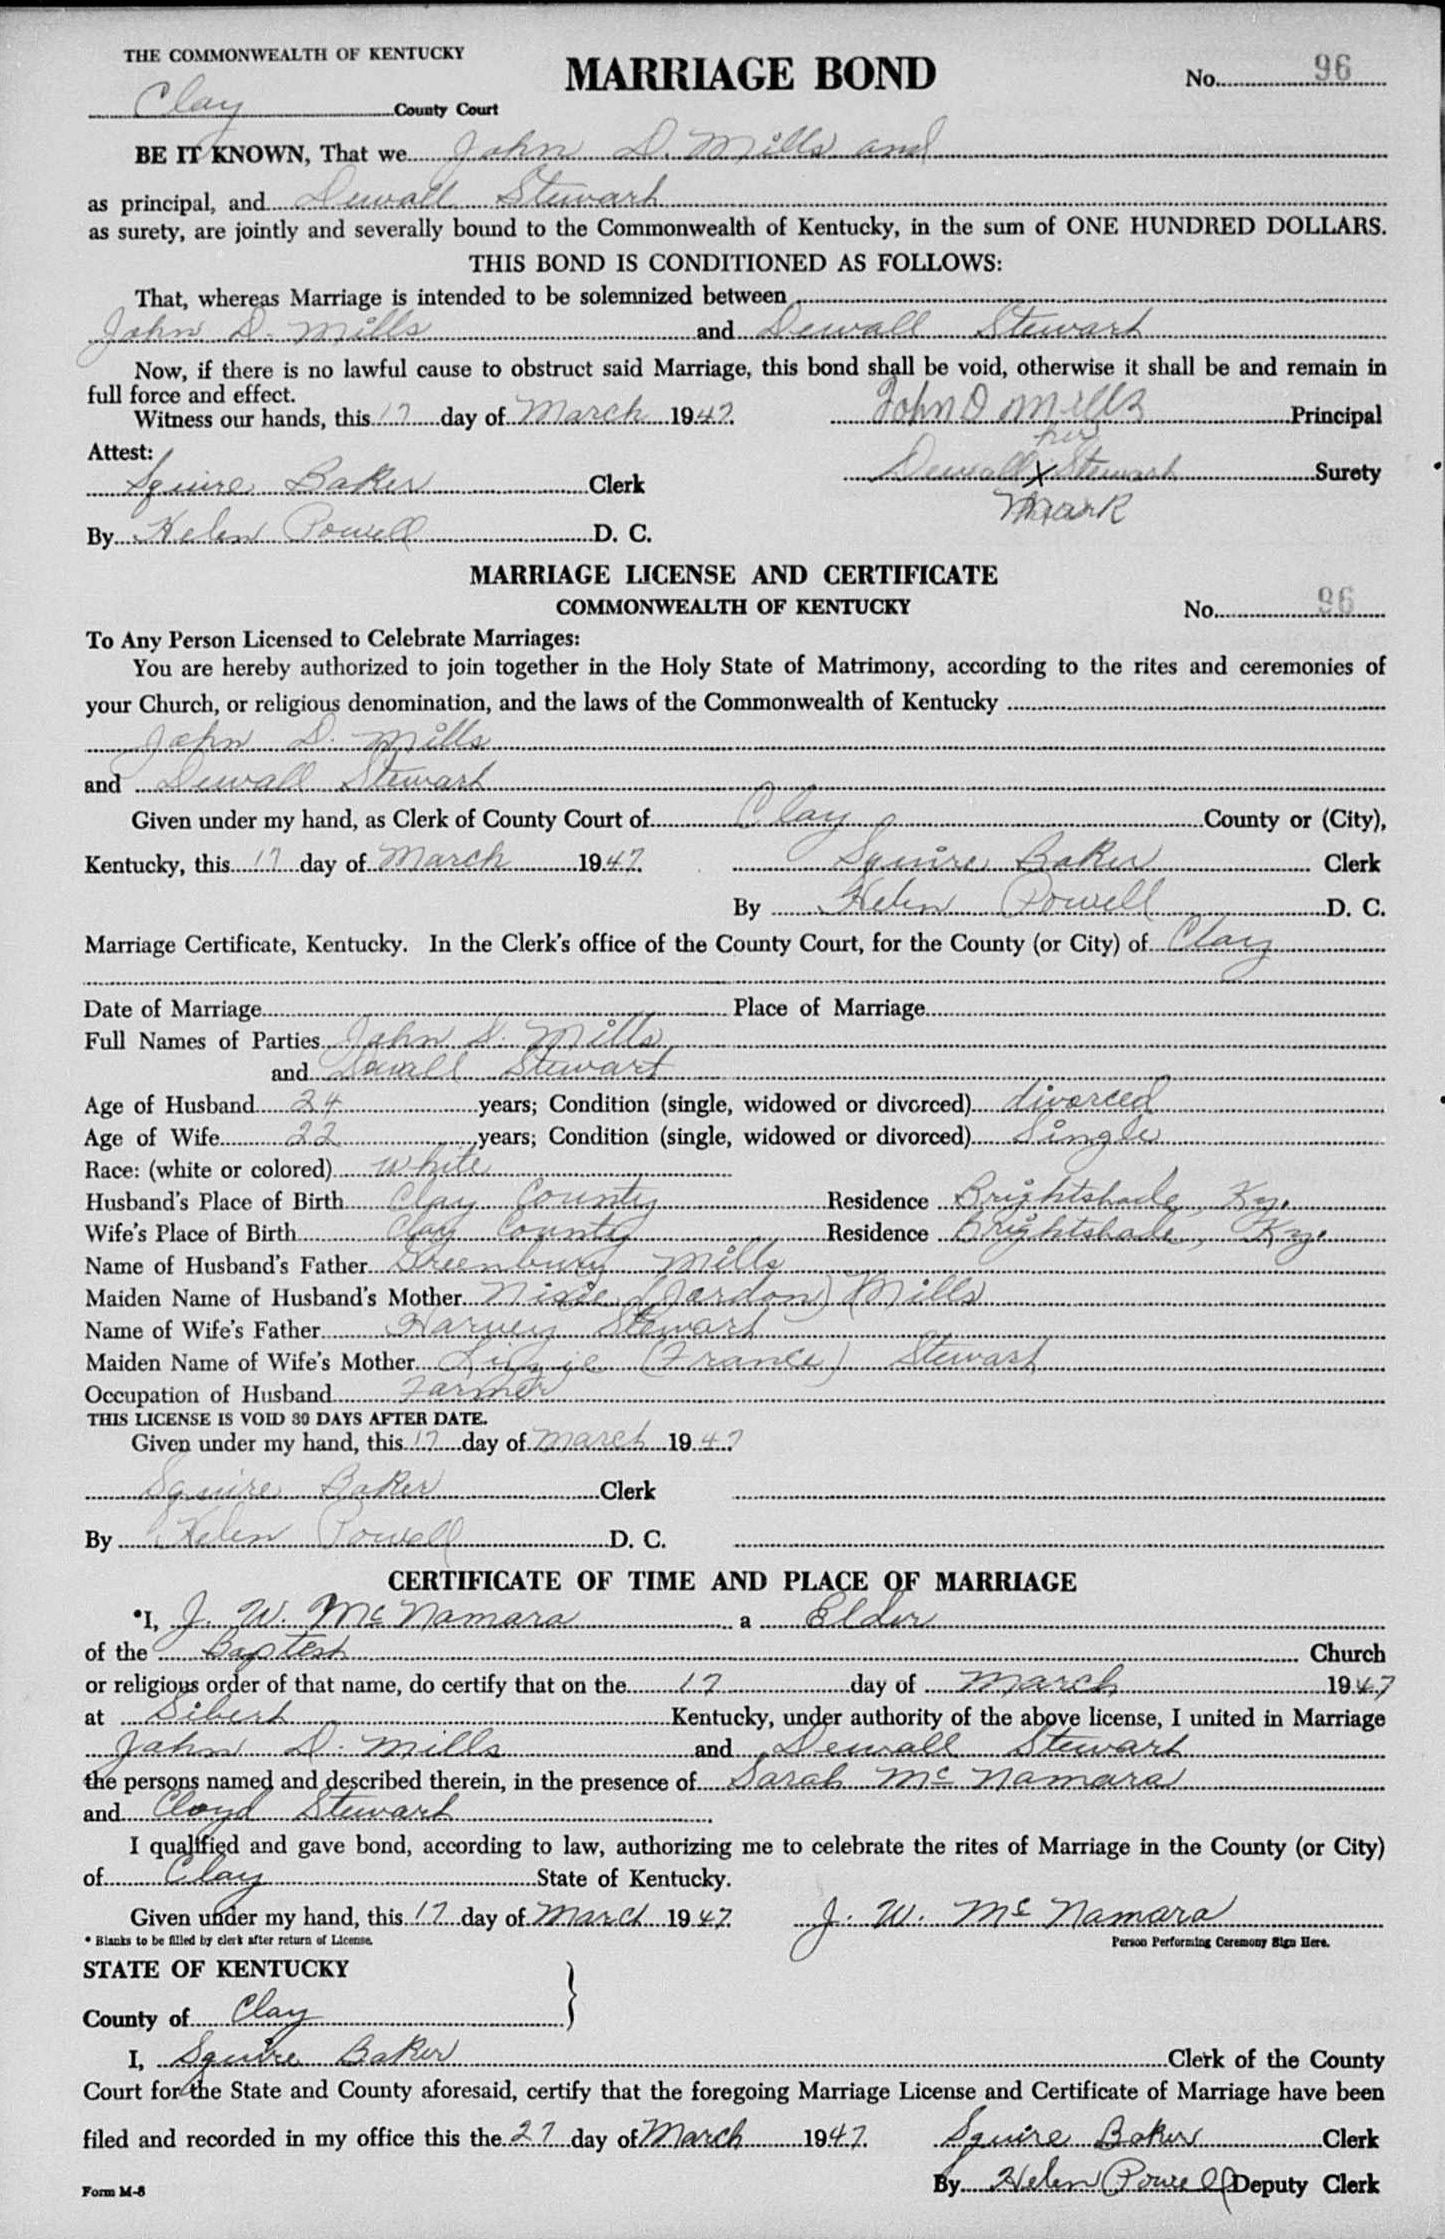 THE COMMONWEALTH OF KENTUCKY
MARRIAGE BOND
No. 96
Clay County Court
BE IT KNOWN, That we John D. Mills and
as principal, and Dewall Stewart
as surety, are jointly and severally bound to the Commonwealth of Kentucky, in the sum of ONE HUNDRED DOLLARS.
THIS BOND IS CONDITIONED AS FOLLOWS:
That, whereas Marriage is intended to be solemnized between
John D. Mills and Dewall Stewart
Now, if there is no lawful cause to obstruct said Marriage, this bond shall be void, otherwise it shall be and remain in
full force and effect.
Witness our hands, this 17 day of March 1947. John D Mills Principal
Attest:
her
Dewall X Stewart Surety
Mark
Squire Baker Clerk
By Helen Powell D. C.
MARRIAGE LICENSE AND CERTIFICATE
COMMONWEALTH OF KENTUCKY
No. 96
To Any Person Licensed to Celebrate Marriages:
You are hereby authorized to join together in the Holy State of Matrimony, according to the rites and ceremonies of
your Church, or religious denomination, and the laws of the Commonwealth of Kentucky
John D. Mills
and Dewall Stewart
Given under my hand, as Clerk of County Court of Clay County or (City),
Kentucky, this 17 day of March 1947. Squire Baker Clerk
By Helen Powell D. C.
Marriage Certificate, Kentucky. In the Clerk's office of the County Court, for the County (or City) of Clay
Date of Marriage Place of Marriage
Full Names of Parties John D. Mills
and Dewall Stewart
Age of Husband 24 years; Condition (single, widowed or divorced) divorced
Age of Wife 22 years; Condition (single, widowed or divorced) Single
Race: (white or colored) white
Husband's Place of Birth Clay County Residence Brightshade, Ky.
Wife's Place of Birth Clay County Residence Brightshade, Ky.
Name of Husband's Father Greenbury Mills
Maiden Name of Husband's Mother Nixie (Jordon) Mills
Name of Wife's Father Harvey Stewart
Maiden Name of Wife's Mother Lizzie (France) Stewart
Occupation of Husband Farmer
THIS LICENSE IS VOID 30 DAYS AFTER DATE.
Given under my hand, this 17 day of March 1947
Squire Baker Clerk
By Helen Powell D. C.
CERTIFICATE OF TIME AND PLACE OF MARRIAGE
*I, J. W. McNamara a Elder
of the Baptest Church
or religious order of that name, do certify that on the 17 day of March 1947
at Sibert Kentucky, under authority of the above license, I united in Marriage
John D. Mills and Dewall Stewart
the persons named and described therein, in the presence of Sarah McNamara
and Cloyd Stewart
I qualified and gave bond, according to law, authorizing me to celebrate the rites of Marriage in the County (or City)
of Clay State of Kentucky.
Given under my hand, this 17 day of March 1947. J. W. McNamara
* Blanks to be filled by clerk after return of License. Person Performing Ceremony Sign Here.
STATE OF KENTUCKY
County of Clay
I, Squire Baker Clerk of the County
Court for the State and County aforesaid, certify that the foregoing Marriage License and Certificate of Marriage have been
filed and recorded in my office this the 27 day of March 1947. Squire Baker Clerk
By Helen Powell Deputy Clerk
Form M-8